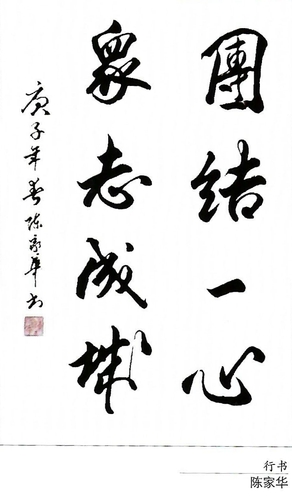 團結一心
衆志成城
庚子年春陈家华书
行书
陈家华